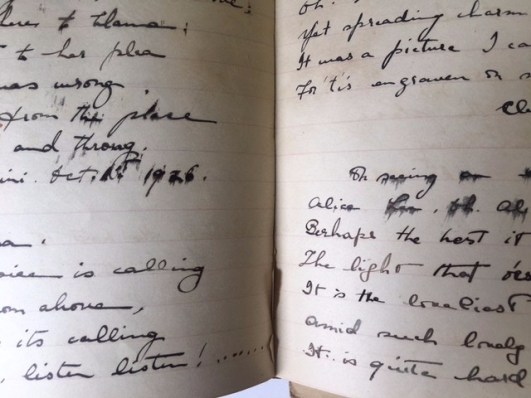 to blame;
to her plea
was wrong
from this place
and throng.
Oct. 1st 1926.
voice is calling
from above,
its calling
, listen listen! ........
Oh.
Yet spreading charm
It was a picture I ca
For 'tis engraven on
On seeing
Alice
Perhaps the best it
The light that
It is the loneliest
Amid such lonely
It is quite hard